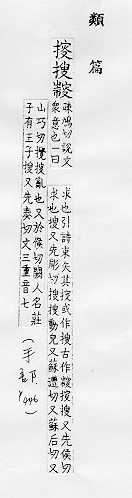 類篇
搜
疎鳩切說文
眾意也一曰
求也引詩束矢其或作搜古作搜又先侯切
求也搜又先彫切搜搜動皃又蘇遭切又蘇后切又
山巧切攪搜亂也又於侯切闕人名莊
子有王子搜又先奏切文三重音七
(手部